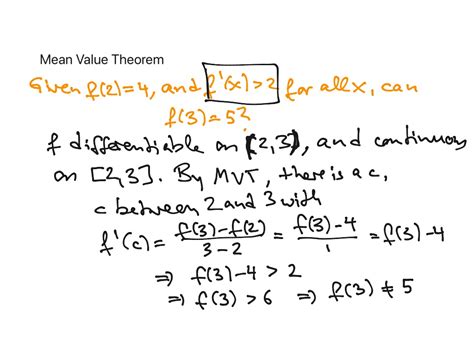 Mean Value Theorem
Given f(2)=4, and f'(x)>2 for all x, can
f(3)=5?
f differentiable on (2,3), and continuous
on [2,3]. By MVT, there is a c,
c between 2 and 3 with
f'(c) = \frac{f(3)-f(2)}{3-2} = \frac{f(3)-4}{1} = f(3)-4
⇒ f(3)-4 > 2
⇒ f(3) > 6 ⇒ f(3) ≠ 5